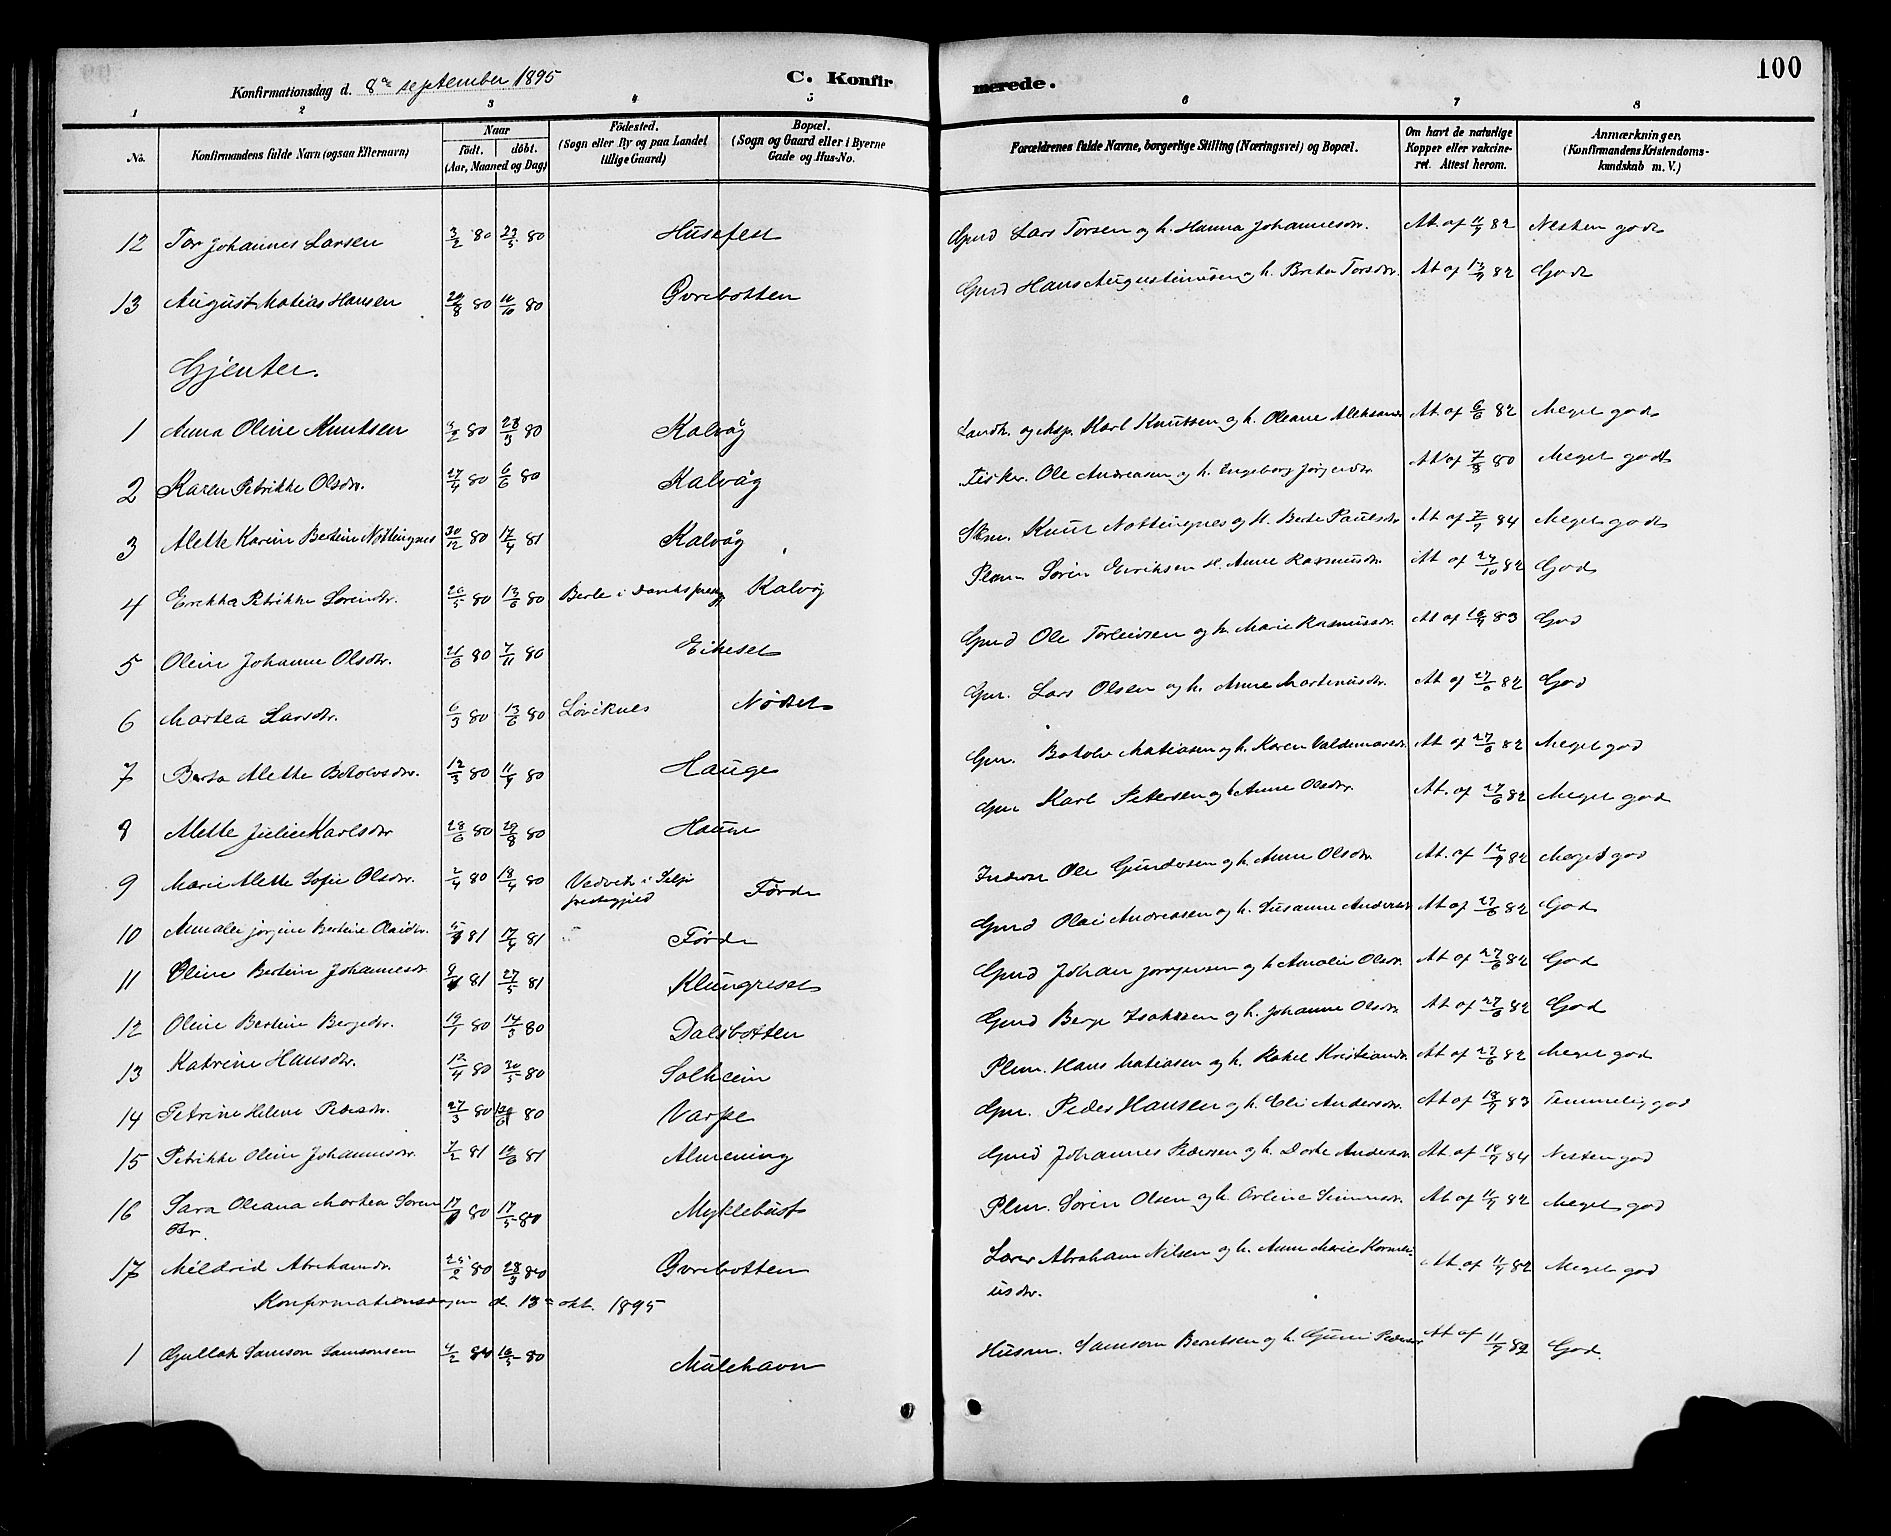 Konfirmationsdag d. 8de september 1895 C. Konfirmerede. 100
1 2 3 4 5 6 7 8
No. Konfirmandens fulde Navn (ogsaa Efternavn) Naar födt. döbt. (Aar, Maaned og Dag) Födested. (Sogn eller By og paa Landet tillige Gaard) Bopæl. (Sogn og Gaard eller i Byerne Gade og Hus-No. Forældrenes fulde Navne, borgerlige Stilling (Næringsvei) og Bopæl. Om havt de naturlige Kopper eller vakcineret. Attest herom. Anmærkninger. (Konfirmandens Kristendomskundskab m. V.)
12 Tor Johannes Larsen 3/2 80 23/5 80 Husefest Gmd Lars Torsen og h. Hanna Johannesdr. At. af 11/9 82 Nesten godt
13 August Matias Hansen 20/8 80 10/10 80 Gvrebotten Gmd Hans Augustinusen og h. Berta Torsdr. At af 13/9 82 Godt
Gjenter.
1 Anna Oline Knutsen 4/2 80 28/3 80 Kalvåg Landh. og Exp. Karl Knutsen og h. Oleane Aleksandr At af 6/6 82 Meget godt
2 Karen Petrikke Olsdr. 27/4 80 6/6 80 Kalvåg Fisker. Ole Andreasen og h. Engeborg Jörgendr. At af 7/8 80 Meget godt
3 Alette Karine Bertine Nöttingnes 30/12 80 17/4 81 Kalvåg Skm. Knut Nöttingnes og h. Berte Paulsdr At af 7/9 84 Meget godt
4 Erikka Petrikke Sörensdr. 20/5 80 13/6 80 Berle i Daviks prestgj Kalvåg Plm Sörin Eeriksen H. Anne Rasmusdr. At af 24/10 82 God
5 Oline Johanne Olsdr. 21/6 80 7/11 80 Eikeset Gmd Ole Torleivsen og h. Marie Rasmusdr. At af 18/9 83 God
6 Martea Larsdr. 6/3 80 13/6 80 Lövikнes Nödset Gm. Lars Olsen og h. Anne Martinusdr. At af 27/6 82 God
7 Berta Alette Botolvsdr. 12/3 80 11/4 80 Hauge Gm. Botolv Matiasen og h. Karen Valdemarsdr At af 27/6 82 Meget god
8 Alette Julie Karlsdr 28/6 80 29/8 80 Hauge Gm Karl Petersen og h Anne Olsdr. At. af 27/6 82 Meget god
9 Marie Alette Sofie Olsdr. 2/4 80 18/4 80 Vedvik i Selje prestegjeld Förde Inderst Ole Gundersen og h. Anne Olsdr. At. af 12/9 82 Meget god
10 Annalie Jörgine Bertine Olaidr. 5/1 81 17/4 81 Förde Gmd Olai Andreasen og h. Susanne Andersdr At af 27/6 82 God
11 Oline Bertine Johannesdr 9/4 81 27/5 81 Klungreset Gmd Johan Jörgensen og h Amalie Olsdr. At af 27/6 82 God
12 Oline Bertine Bergedr. 19/1 80 14/3 80 Dalsbotten Gmd Berge Isaksen og h. Johanne Olsdr At af 27/6 82 God
13 Katrine Hansdr. 12/4 80 30/5 80 Solheim Plm. Hans Matiasen og h. Rakel Kristiandr At af 27/6 82 Meget god
14 Petrine Helene Pedersdr. 27/3 80 80 Varpe Gm. Peder Hansen og h. Eli Andersdr. At af 18/9 83 Temmelig god
15 Petrikke Oline Johannesdr. 7/2 81 19/6 81 Almening Gmd Johannes Pedersen og h. Dorte Andersdr At af 18/9 84 Nesten god
16 Sara Oleana Martea Sören dtr. 17/1 80 17/5 80 Myklebust Plm. Sörin Olsen og h. Orline Simonsdr. At af 11/9 82 Meget god
17 Mildrid Abrahamdr. 25/2 80 28/3 80 Gvrebotten Lærer Abraham Nilsen og h. Anne Marie Korneliusdr. At. af 11/9 82 Meget god
Konfirmationsdagen d. 13de okt. 1895
1 Gullak Samson Samsonsen 4/2 80 16/5 80 Mulehavn Husm. Samson Berntsen og h. Guni Pedersdr At af 11/9 82 God.